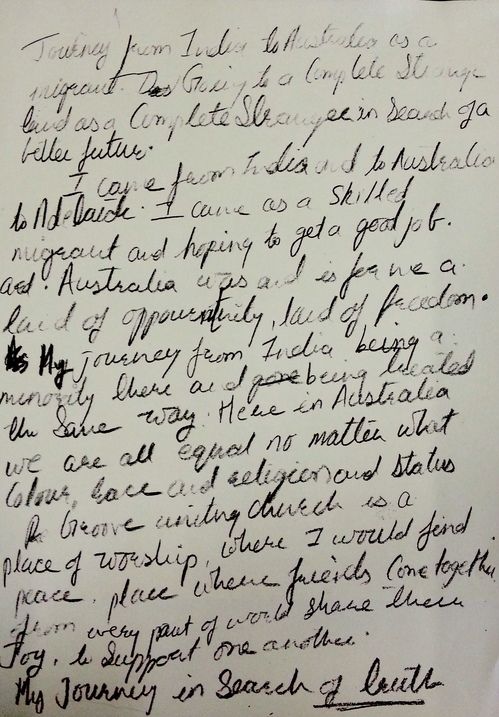 Journey from India to Australia as a
migrant. Going to a Complete Strange
land as a Complete Stranger in Search of a
better future.
I came from India and to Australia
to Adelaide. I came as a Skilled
migrant and hoping to get a good job.
and. Australia was and is for me a
land of oppourtnity, land of freedom.
My journey from India being a
minority there and being treated
the Same way. Here in Australia
we are all equal no matter what
Colour, race and religion and status
Groove uniting church is a
place of worship, where I would find
peace. place where friends Come together
from every part of world share their
Joy, to Support one another.
My Journey in Search of truth